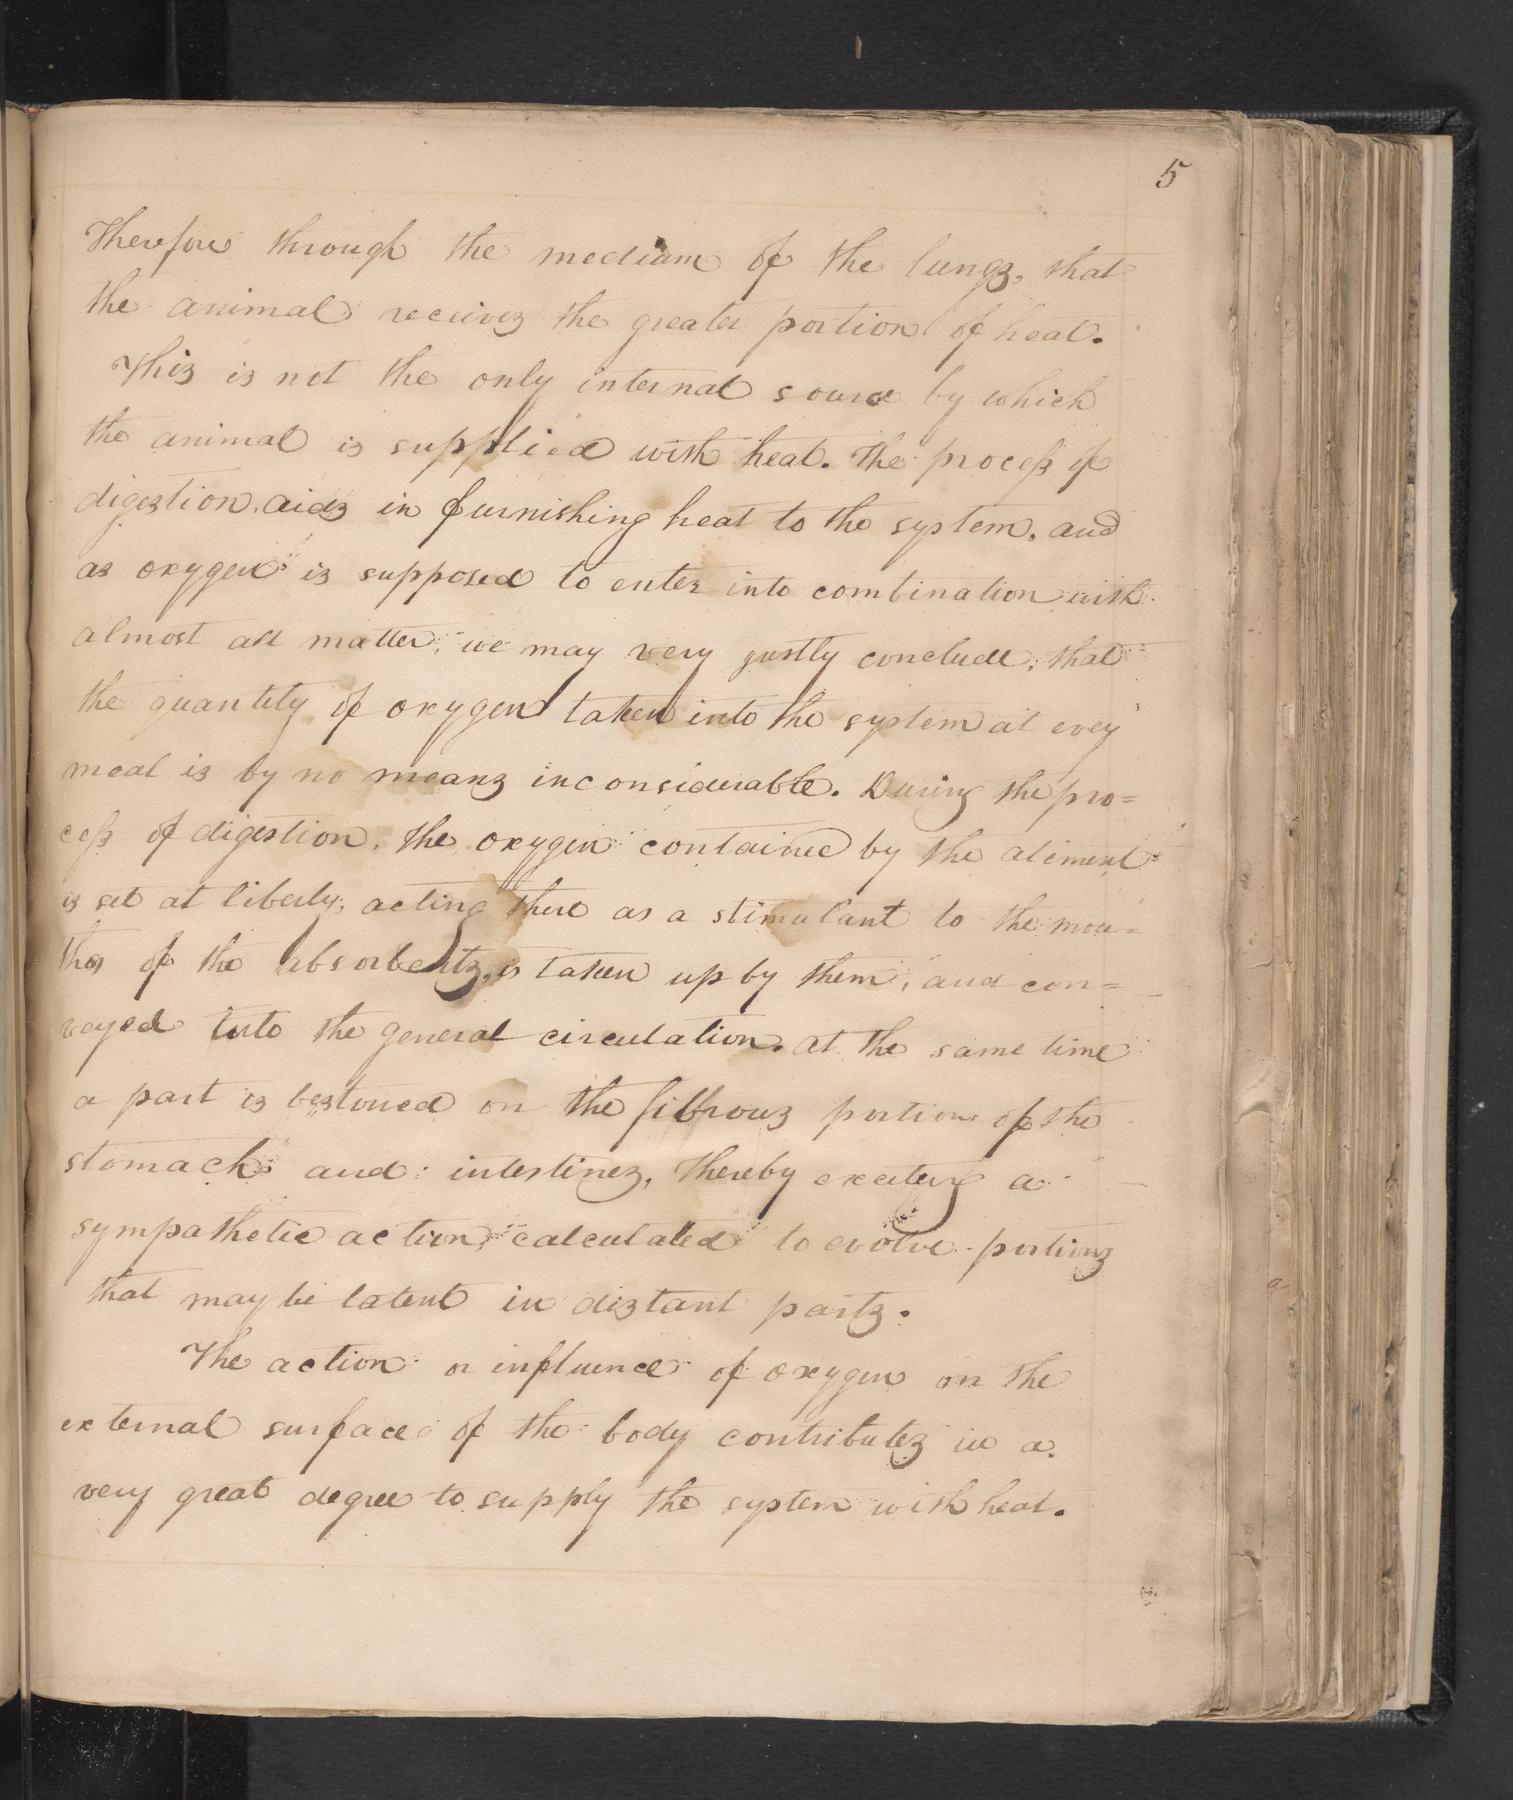 5
Therefore through the medium of the lungs, that
the animal receives the greater portion of heat.
This is not the only internal source by which
the animal is supplied with heat. The process of
digestion, aids in furnishing heat to the system, and
as oxygen is supposed to enter into combination with
almost all matter, we may very justly conclude, that
the quantity of oxygen taken into the system at evey
meal is by no means inconsiderable. During the pro=
cess of digestion, the oxygen contained by the aliment
is set at liberty, acting there as a stimulant to the mou=
ths of the absorbents, is taken up by them, and con=
veyed into the general circulation. At the same time
a part is bestowed on the fibrous portions of the
stomach and intestines, thereby exciting a
sympathetic action, calculated to evolve portions
that may be latent in distant parts.
The action or influence of oxygen on the
external surface of the body contributes in a
very great degree to supply the system with heat.